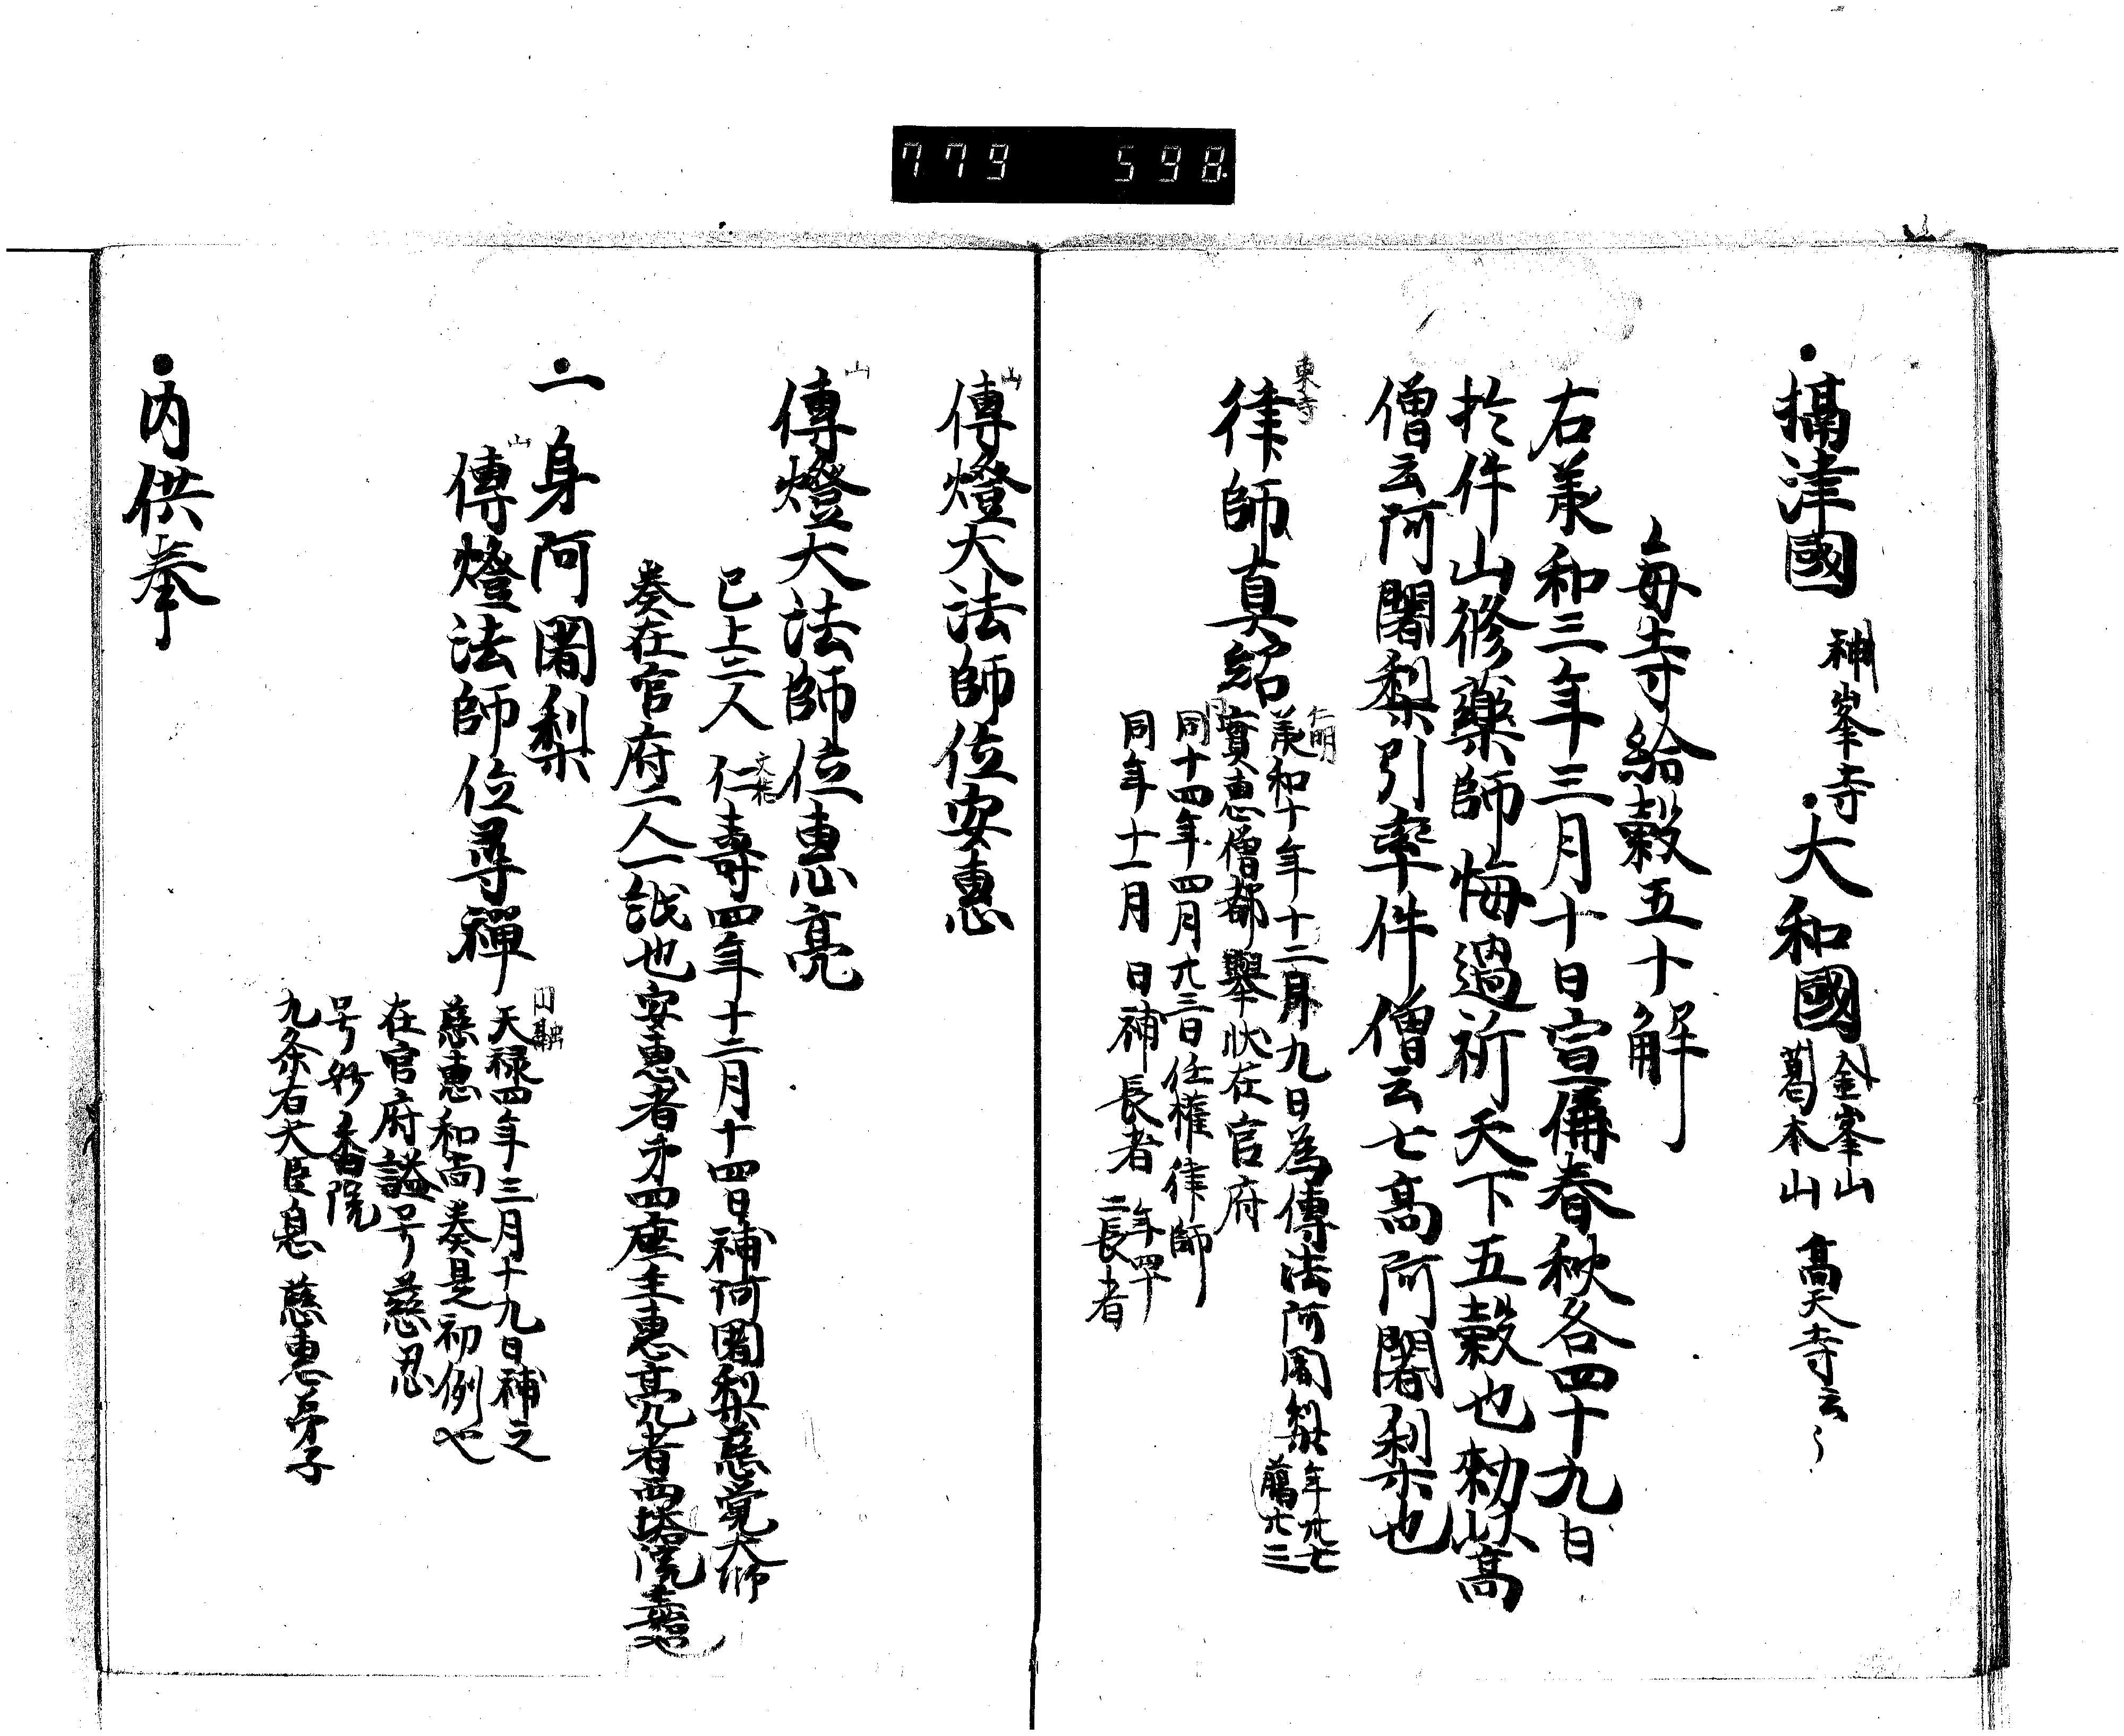 779 598
攝津國 神峯寺 大和國 金峯山 葛木山 高天寺云々
毎寺給穀五十解
右羕和三年三月十日宣偁春秋各四十九日
於件山修藥師悔過祈天下五穀也勅以高
僧云阿闍梨引率件僧云七高阿闍梨也
東寺
律師真紹
仁明
羕和十年十二月九日為傳法阿闍梨 年卌七 﨟廿三
實恵僧都舉状在官府
同十四年四月廿三日任權律師
同年十一月 日補長者 年四十 二長者
山
傳燈大法師位安惠
山
傳燈大法師位惠亮
已上二人 仁壽四年十二月十四日補阿闍梨慈覚大師
文徳
奏在官府二人一紙也安惠者才四座主惠亮者西塔院
一身阿闍梨
山
傳燈法師位尋禪
円融
天禄四年三月十九日補之
慈惠和尚奏是初例也
在官府謚号慈忍
号 院
九条右大臣息 慈惠弟子
内供奉